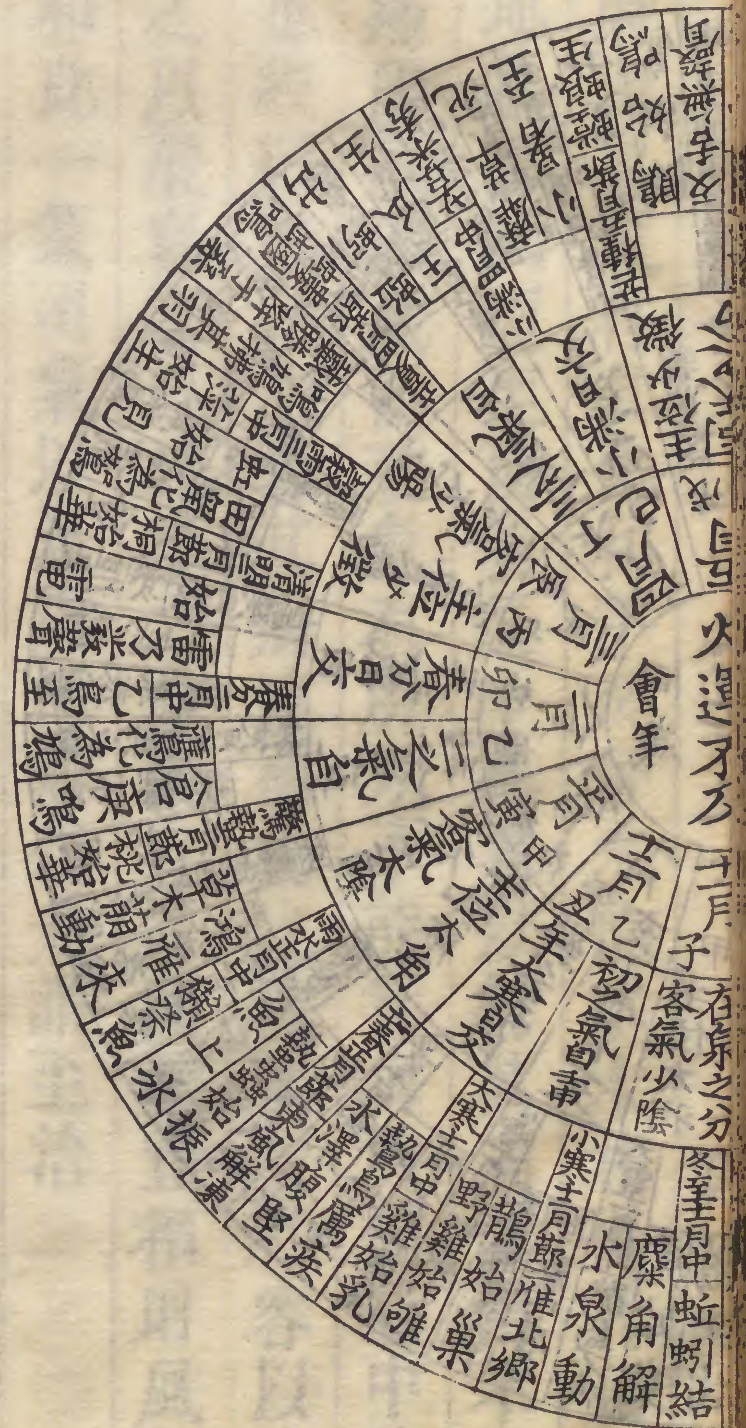 火運不及
會年
十一月
子
十二月乙
丑
正月
甲寅
二月
乙卯
三月
丙辰
四月丁
巳
五月
戊
在泉之分
客氣少陰
初之氣自前
年大寒日交
主位太角
客氣太陰
二之氣自
春分日交
主位少徵
客氣少陽
三之氣自
小滿日交
主位少徵
冬至十一月中 蚯蚓結
麋角解
水泉動
小寒十二月節 雁北鄉
鵲始巢
野雞始雊
大寒十二月中 雞始乳
鷙鳥厲疾
水澤腹堅
立春正月節 東風解凍
蟄蟲始振
魚上冰
雨水正月中 獺祭魚
鴻雁來
草木萌動
驚蟄二月節 桃始華
倉庚鳴
鷹化為鳩
春分二月中 乙鳥至
雷乃發聲
始電
清明三月節 桐始華
田鼠化為鴽
虹始見
穀雨三月中 萍始生
鳴鳩拂其羽
戴勝降于桑
立夏四月節 螻蟈鳴
蚯蚓出
王瓜生
小滿四月中 苦菜秀
靡草死
小暑至
芒種五月節 螳螂生
鵙始鳴
反舌無聲